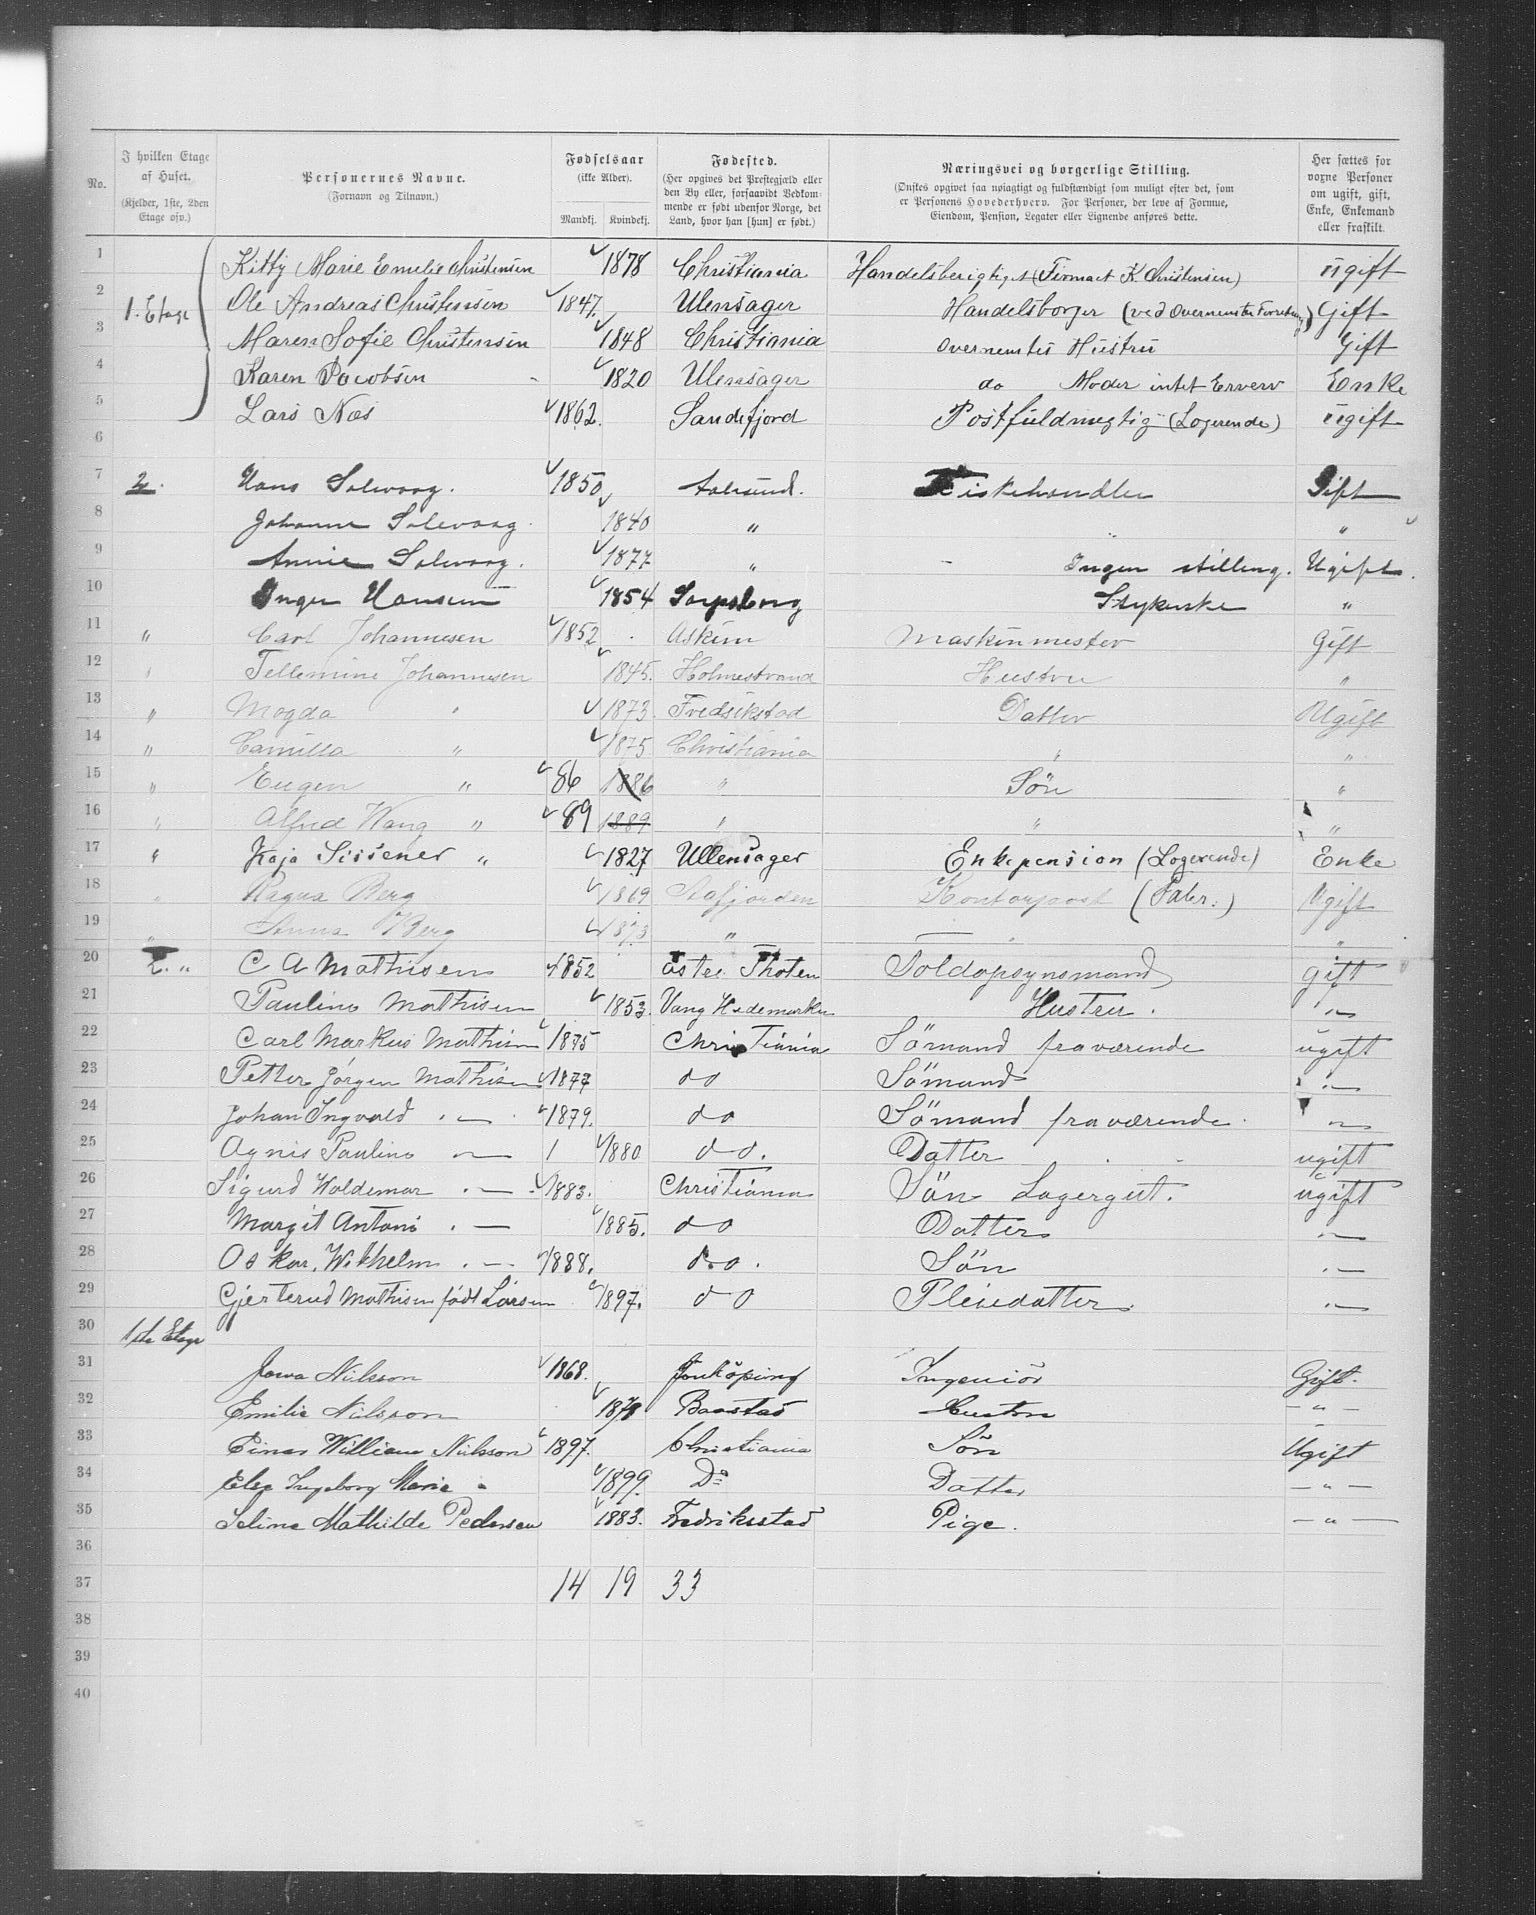 No. I hvilken Etage af Huset. (Kjelder, 1ste, 2den Etage osv.) Personernes Navne. (Fornavn og Tilnavn.) Fødselsaar (ikke Alder). Mandkj. Kvindekj. Fødested. (Her opgives det Prestegjæld eller den By eller, forsaavidt Vedkommende er født udenfor Norge, det Land, hvor han [hun] er født.) Næringsvei og borgerlige Stilling. (Ønskes opgivet saa nøiagtigt og fuldstændigt som muligt efter det, som er Personens Hovederhverv. For Personer, der leve af Formue, Eiendom, Pension, Legater eller Lignende anføres dette. Her sættes for voxne Personer om ugift, gift, Enke, Enkemand eller fraskilt.
1 Kitty Marie Emelie Christensen 1878 Christiania Handelsberigtiget (Firmaet K. Christensen) ugift
2 1. Etage Ole Andreas Christensen 1847. Ulensager Handelsborger (ved Overnevnte Forretning) Gift
3 Maren Sofie Christensen 1848 Christiania Overnevntes Hustru Gift
4 Karen Jacobsen 1820 Ulensager do Moder intet Erverv Enke
5 Lars Næs 1862. Sandefjord Postfuldmegtig (Logerende) ugift
6
7 2. Hans Solevaag. 1850 Aalesund. Fiskehandler Gift
8 Johanne Solevaag 1840 " "
9 Annie Solevaag. 1877 " Ingen stilling. Ugift.
10 Inger Hansen 1854 Sarpsborg Strykerske "
11 " Carl Johannesen 1852 Askim Maskinmester Gift
12 " Tellemine Johannesen 1845. Holmestrand Hustru "
13 " Magda " 1873. Fredrikstad Datter Ugift
14 " Camilla " 1875 Christiania " "
15 " Eugen " 86 1886 " Søn "
16 " Alfred Wang " 89 1889 " " "
17 " Kaja Sissener " 1827 Ullensager Enkepension (Logerende) Enke
18 " Ragna Berg 1869 Aafjorden Kontorpost (Fabr.) Ugift
19 " Berg 1873 " " "
20 2. " C A Mathisen 1852 Østre Thoten Toldopsynsmand gift
21 Pauline Mathisen 1853. Vang Hedemarken Hustru. "
22 Carl Markus Mathisen 1875 Christiania Sömand fraværende ugift
23 Petter Jørgen Mathisen 1877 do Sömand "
24 Johan Ingvald " 1879. do Sömand fraværende. "
25 Agnis Pauline " 1 1880 do. Datter ugift
26 Sigurd Waldemar " 1883. Christiania Sön Lagergut. ugift
27 Margit Antoni " 1885. do Datter "
28 Oskar Wilhelm " 1888. do. Sön "
29 Gjerterud Mathisen født Larsen 1897. do Pleiedatter. "
30 1ste Etage
31 Nilsson 1868. Jonköping Ingeniör Gift.
32 Emilie Nilsson 187 Baastad Hustru - " -
33 Einar William Nilsson 1897. Christiania Sön Ugift
34 Elsa Ingeborg Marie " 1899. Do Datter - " -
35 Seline Mathilde Pedersen 1883. Fredriksstad Pige. - " -
36
37 14 19 33
38
39
40